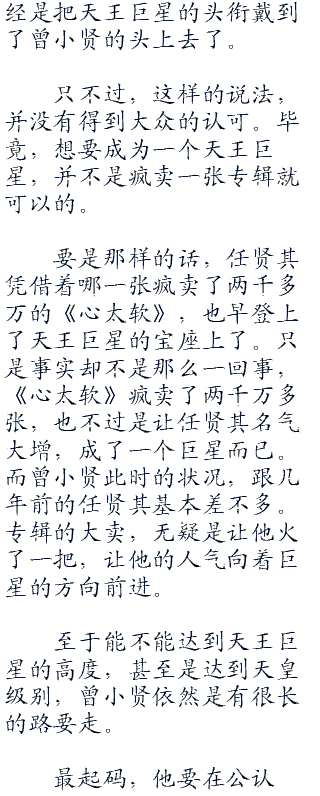 经是把天王巨星的头衔戴到
了曾小贤的头上去了。
只不过，这样的说法，
并没有得到大众的认可。毕
竟，想要成为一个天王巨
星，并不是疯卖一张专辑就
可以的。
要是那样的话，任贤其
凭借着哪一张疯卖了两千多
万的《心太软》，也早登上
了天王巨星的宝座上了。只
是事实却不是那么一回事，
《心太软》疯卖了两千万多
张，也不过是让任贤其名气
大增，成了一个巨星而已。
而曾小贤此时的状况，跟几
年前的任贤其基本差不多。
专辑的大卖，无疑是让他火
了一把，让他的人气向着巨
星的方向前进。
至于能不能达到天王巨
星的高度，甚至是达到天皇
级别，曾小贤依然是有很长
的路要走。
最起码，他要在公认